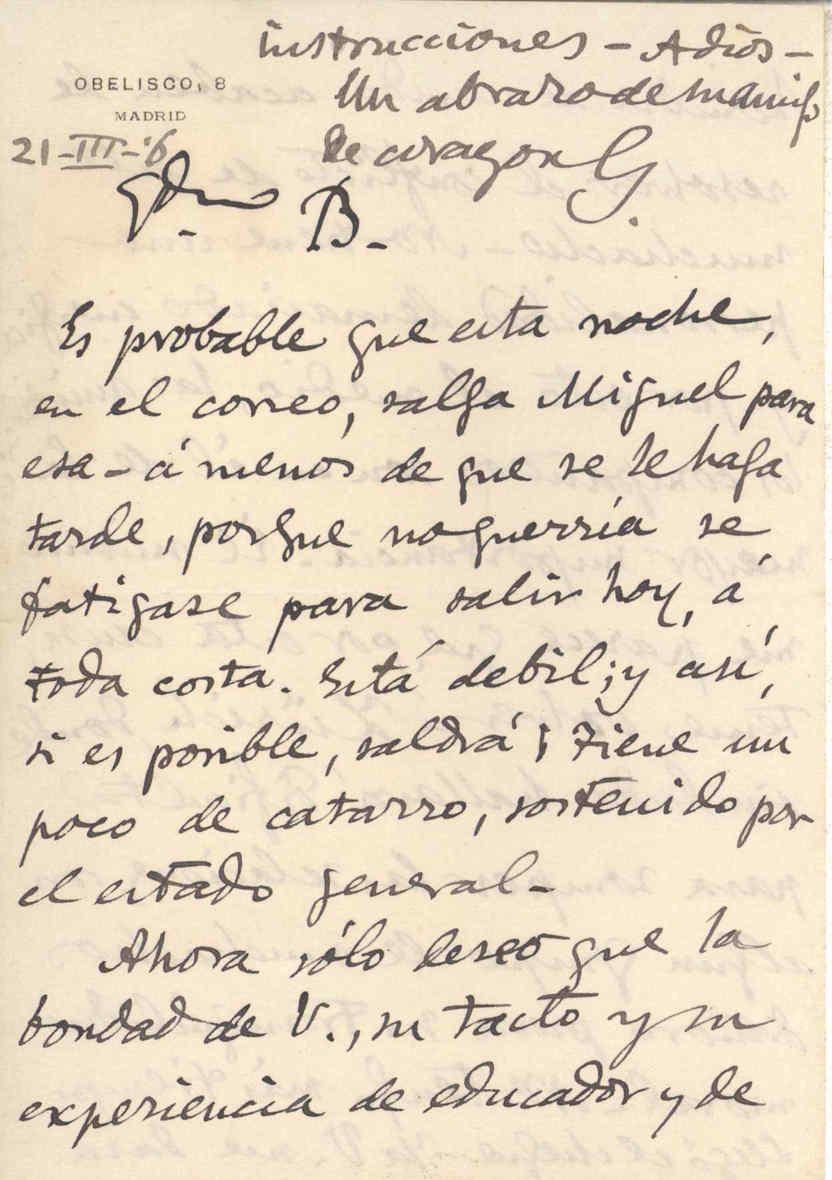 instrucciones – Adiós –
Un abrazo de su amigo
de corazon G.
OBELISCO, 8
MADRID
21-III-'6
B.
Es probable que esta noche,
en el correo, salga Miguel para
esa – á menos de que se le haga
tarde, porque no querría se
fatigase para salir hoy, á
toda costa. Está debil; y así,
si es posible, saldrá; tiene un
poco de catarro, sostenido por
el estado general –
Ahora sólo deseo que la
bondad de V., su tacto y su
experiencia de educador y de